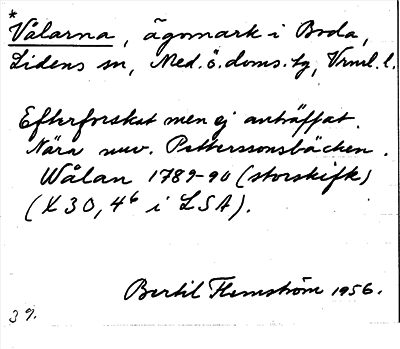 *
Vålarna, ägomark i Boda,
Lidens sn, Med.ö. doms. tg, Vrml. l.
Efterforskat men ej anträffat.
Nära nuv. Petterssonsbäcken.
Wålan 1789-90 (storskifte)
(X 30, 4⁶ i LSA).
Bertil Flemström 1956.
39.